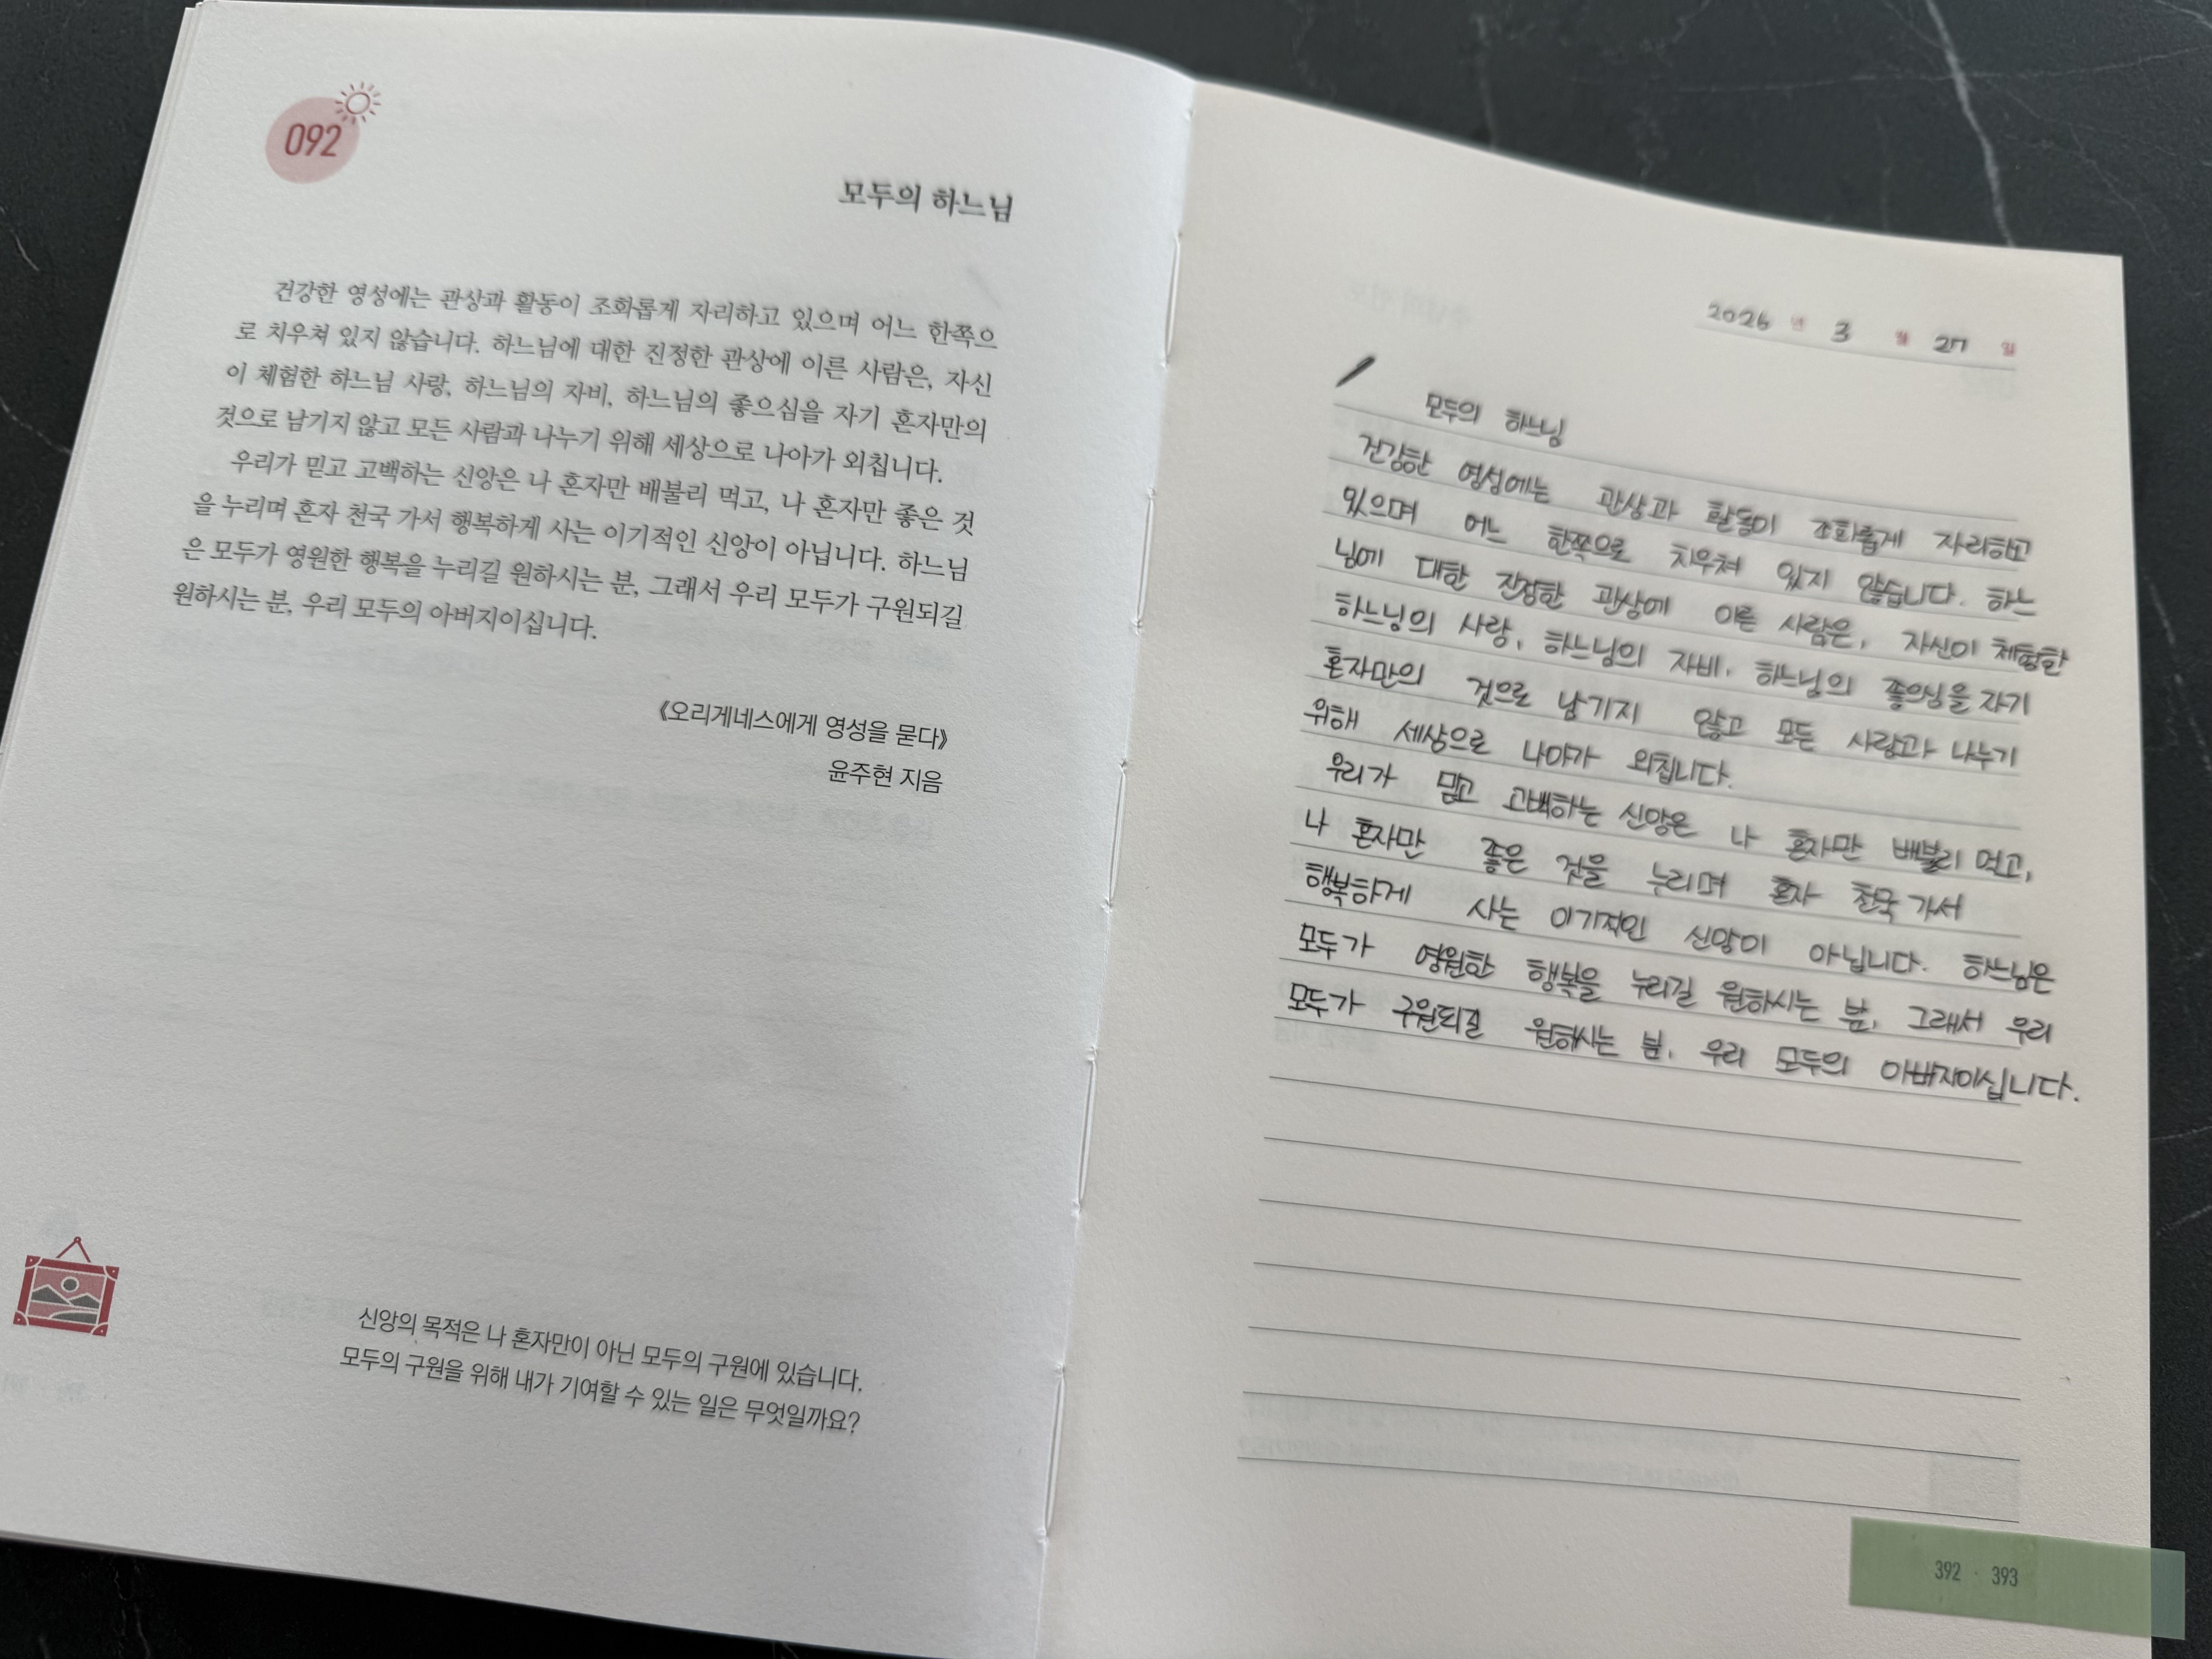 092
모두의 하느님
건강한 영성에는 관상과 활동이 조화롭게 자리하고 있으며 어느 한쪽으
로 치우쳐 있지 않습니다. 하느님에 대한 진정한 관상에 이른 사람은, 자신
이 체험한 하느님 사랑, 하느님의 자비, 하느님의 좋으심을 자기 혼자만의
것으로 남기지 않고 모든 사람과 나누기 위해 세상으로 나아가 외칩니다.
우리가 믿고 고백하는 신앙은 나 혼자만 배불리 먹고, 나 혼자만 좋은 것
을 누리며 혼자 천국 가서 행복하게 사는 이기적인 신앙이 아닙니다. 하느님
은 모두가 영원한 행복을 누리길 원하시는 분, 그래서 우리 모두가 구원되길
원하시는 분, 우리 모두의 아버지이십니다.
《오리게네스에게 영성을 묻다》
윤주현 지음
신앙의 목적은 나 혼자만이 아닌 모두의 구원에 있습니다.
모두의 구원을 위해 내가 기여할 수 있는 일은 무엇일까요?
2026 년 3 월 27 일
모두의 하느님
건강한 영성에는 관상과 활동이 조화롭게 자리하고
있으며 어느 한쪽으로 치우쳐 있지 않습니다. 하느
님에 대한 진정한 관상에 이른 사람은, 자신이 체험한
하느님의 사랑, 하느님의 자비, 하느님의 좋으심을 자기
혼자만의 것으로 남기지 않고 모든 사람과 나누기
위해 세상으로 나아가 외칩니다.
우리가 믿고 고백하는 신앙은 나 혼자만 배불리 먹고,
나 혼자만 좋은 것을 누리며 혼자 천국 가서
행복하게 사는 이기적인 신앙이 아닙니다. 하느님은
모두가 영원한 행복을 누리길 원하시는 분, 그래서 우리
모두가 구원되길 원하시는 분, 우리 모두의 아버지이십니다.
392 · 393